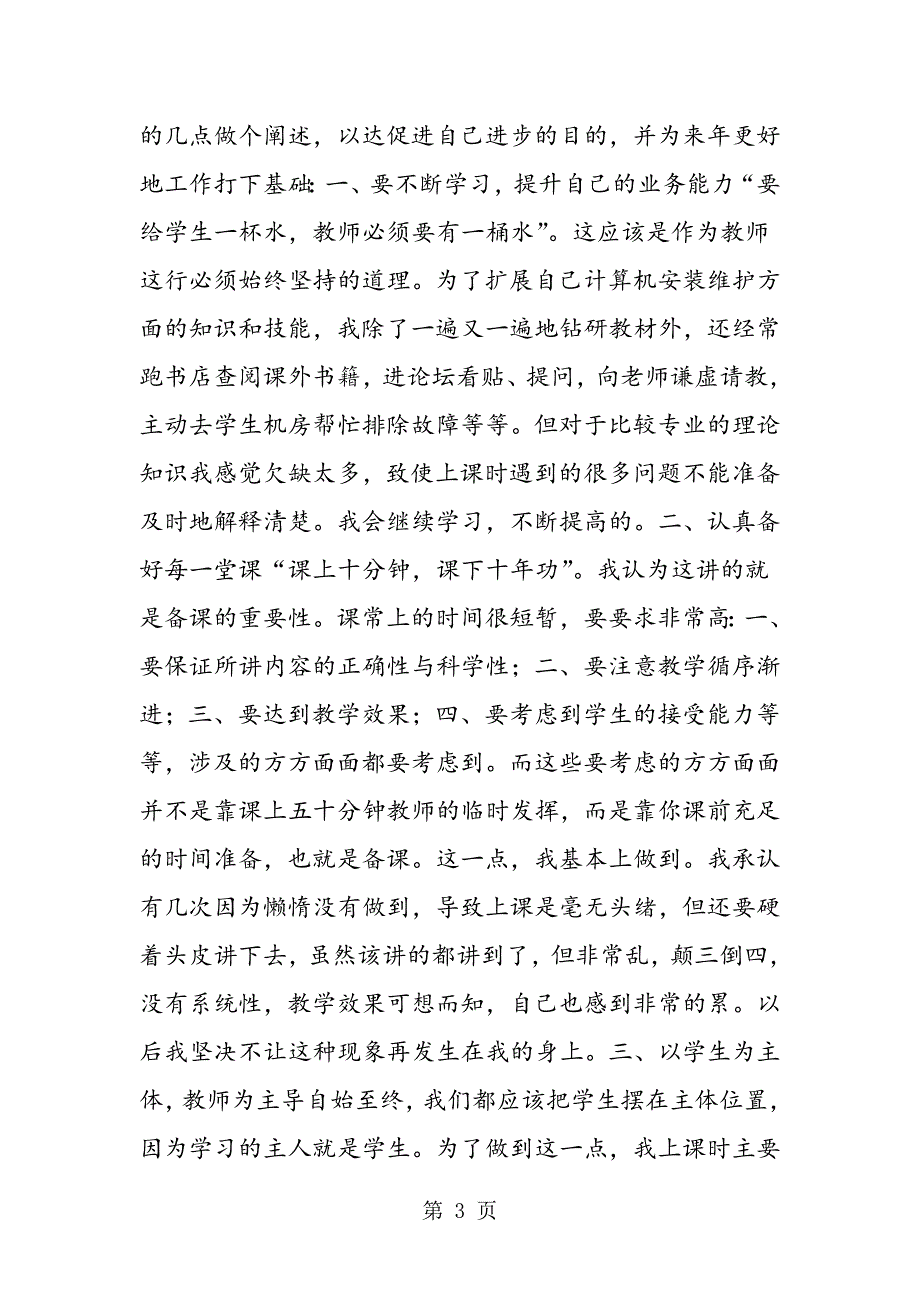 的几点做个阐述，以达促进自己进步的目的，并为来年更好
地工作打下基础：一、要不断学习，提升自己的业务能力“要
给学生一杯水，教师必须要有一桶水”。这应该是作为教师
这行必须始终坚持的道理。为了扩展自己计算机安装维护方
面的知识和技能，我除了一遍又一遍地钻研教材外，还经常
跑书店查阅课外书籍，进论坛看贴、提问，向老师谦虚请教，
主动去学生机房帮忙排除故障等等。但对于比较专业的理论
知识我感觉欠缺太多，致使上课时遇到的很多问题不能准备
及时地解释清楚。我会继续学习，不断提高的。二、认真备
好每一堂课“课上十分钟，课下十年功”。我认为这讲的就
是备课的重要性。课常上的时间很短暂，要要求非常高：一、
要保证所讲内容的正确性与科学性；二、要注意教学循序渐
进；三、要达到教学效果；四、要考虑到学生的接受能力等
等，涉及的方方面面都要考虑到。而这些要考虑的方方面面
并不是靠课上五十分钟教师的临时发挥，而是靠你课前充足
的时间准备，也就是备课。这一点，我基本上做到。我承认
有几次因为懒惰没有做到，导致上课是毫无头绪，但还要硬
着头皮讲下去，虽然该讲的都讲到了，但非常乱，颠三倒四，
没有系统性，教学效果可想而知，自己也感到非常的累。以
后我坚决不让这种现象再发生在我的身上。三、以学生为主
体，教师为主导自始至终，我们都应该把学生摆在主体位置，
因为学习的主人就是学生。为了做到这一点，我上课时主要
第 3 页